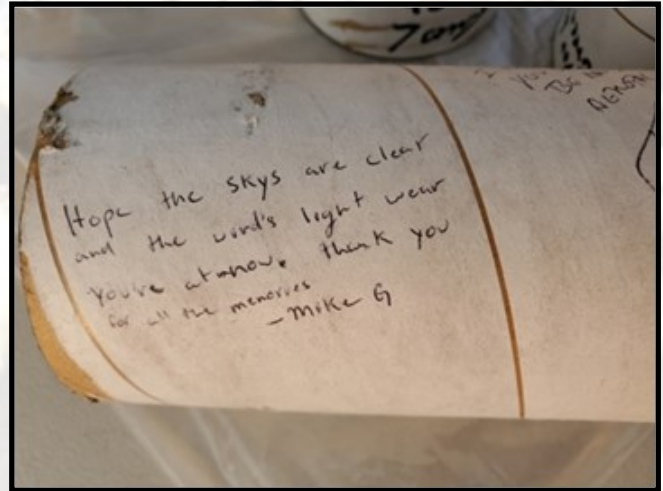 Hope the skys are clear
and the wind's light wear
you're at now. thank you
for all the memories
- Mike G
BE